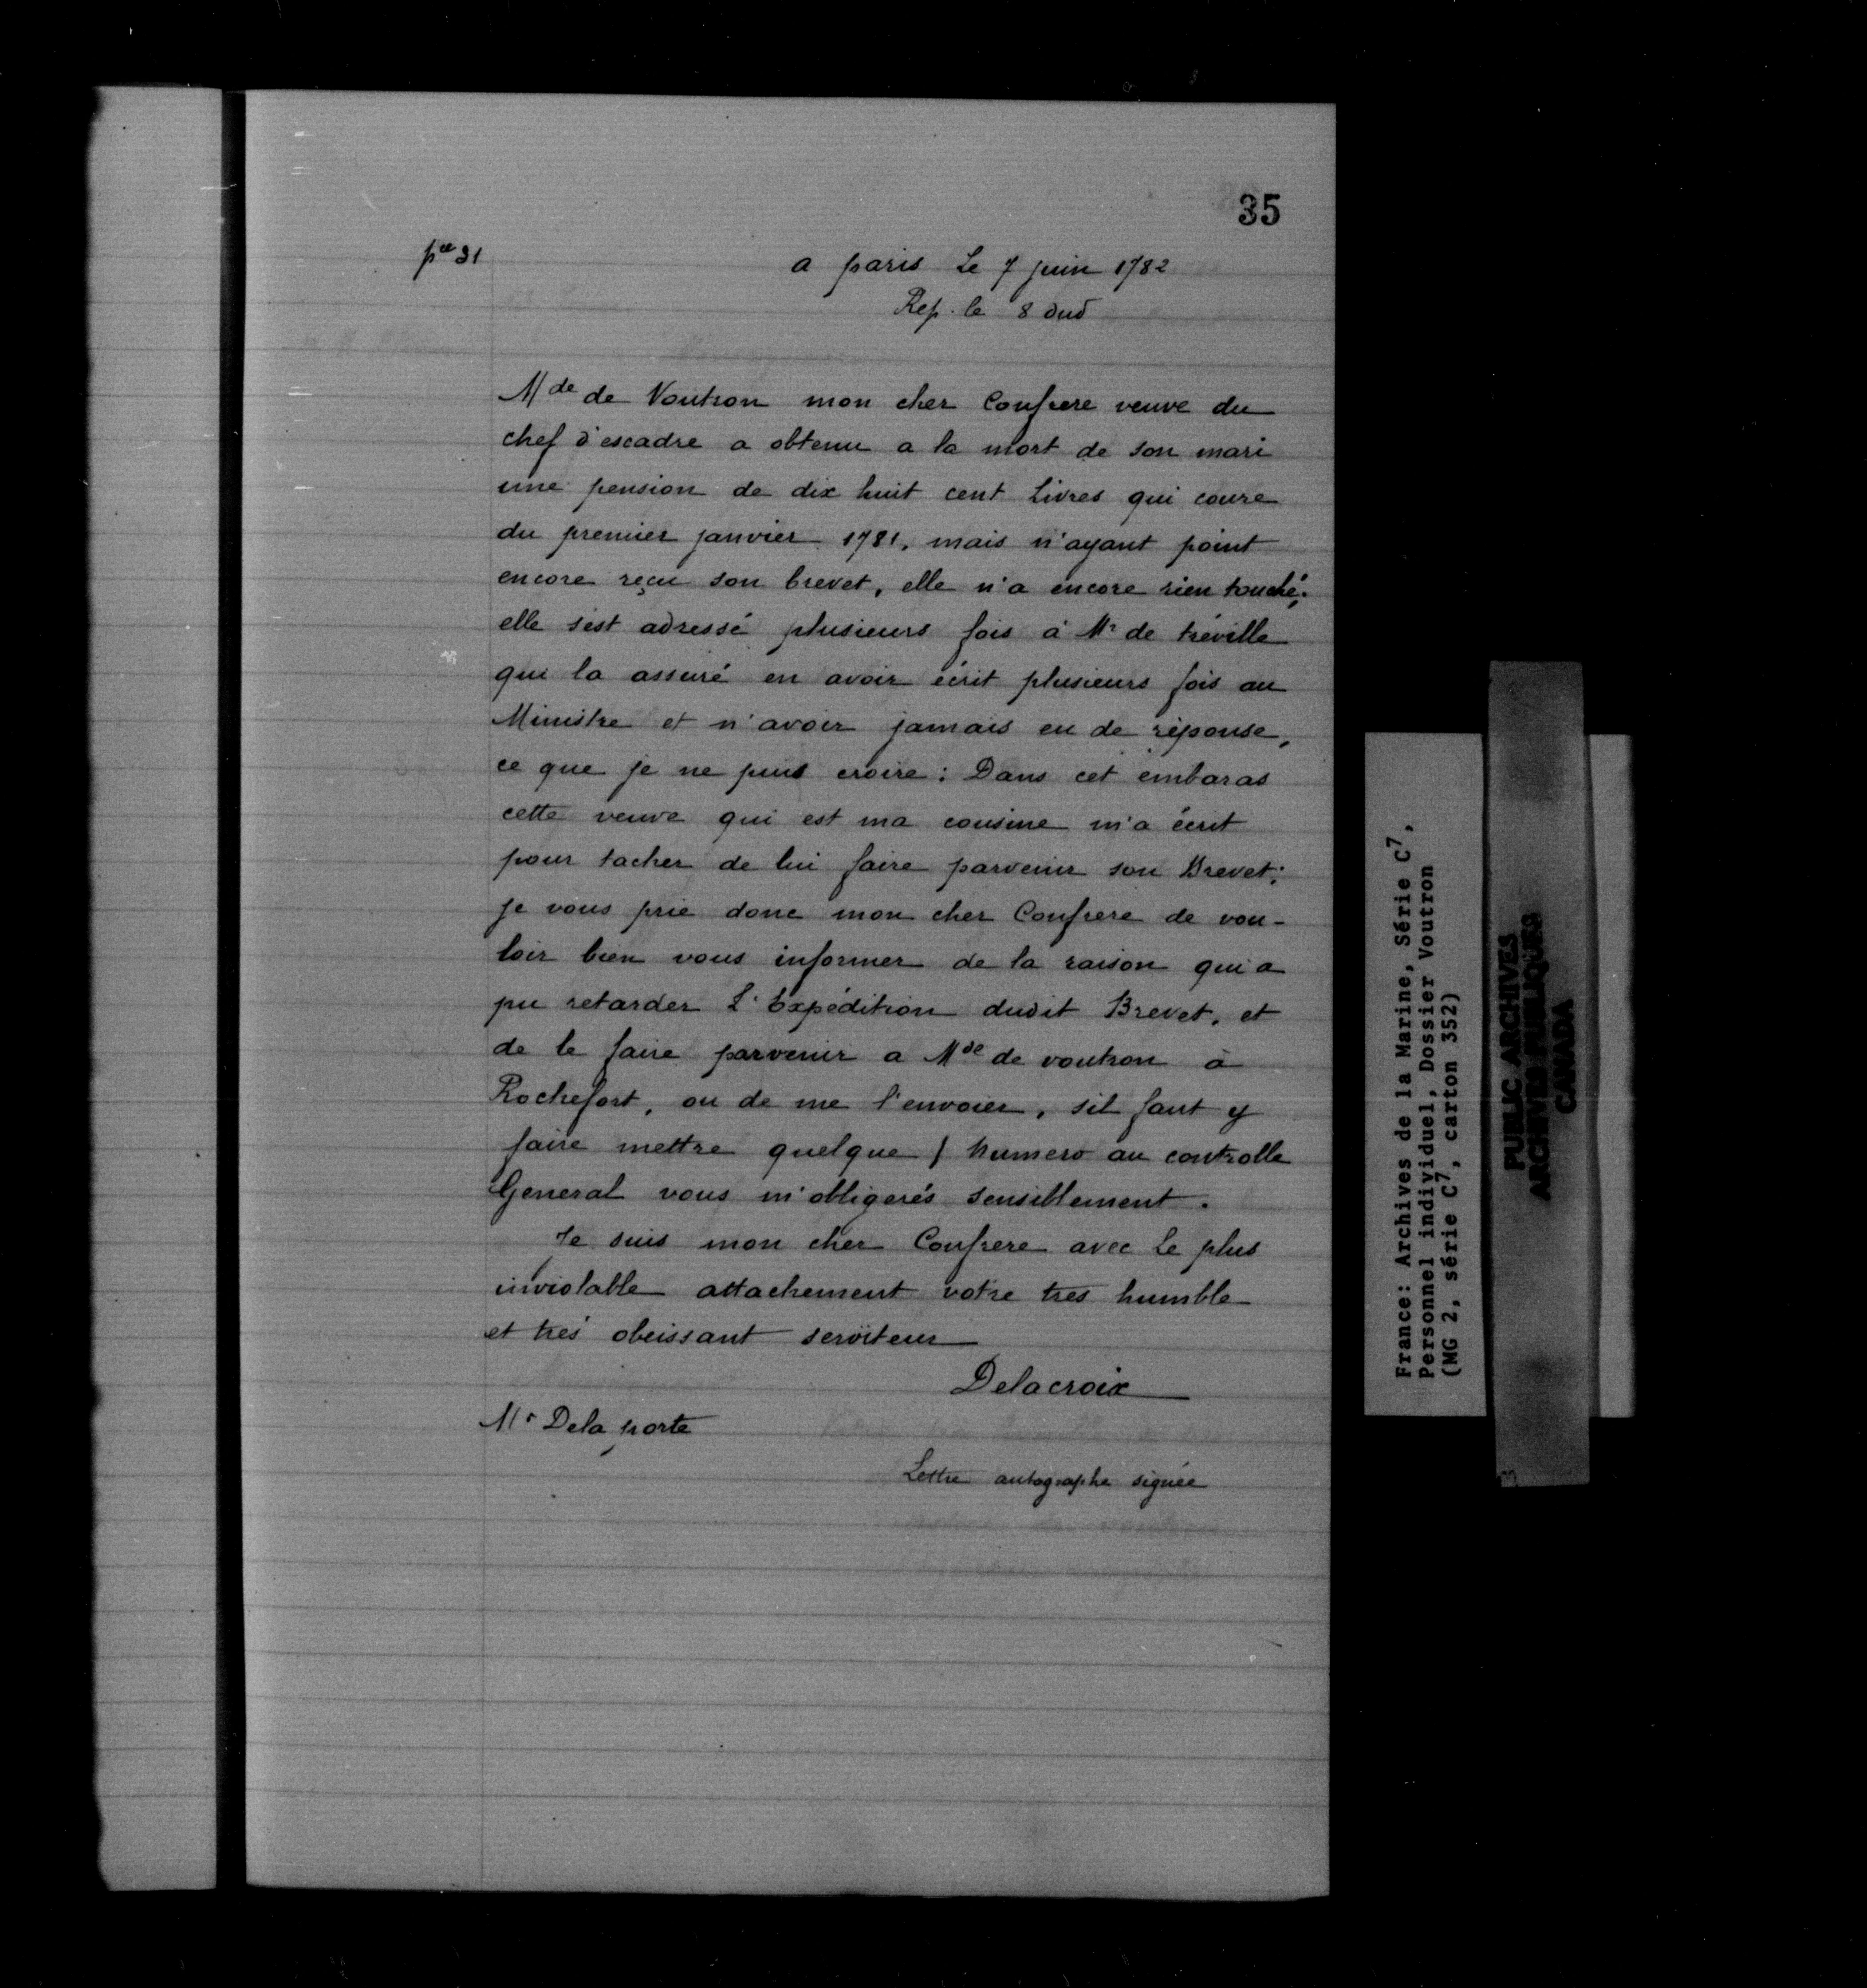 35
pce 31
a paris Le 7 juin 1782
Rep. le 8 dud
Mde de Voutron mon cher Confrere veuve du
chef d'escadre a obtenu a la mort de son mari
une pension de dix huit cent Livres qui coure
du premier janvier 1781, mais n'ayant point
encore reçu son brevet, elle n'a encore rien touché;
elle s'est adressé plusieurs fois à Mr de tréville
qui la assuré en avoir écrit plusieurs fois au
Ministre et n'avoir jamais eu de réponse,
ce que je ne puis croire : Dans cet embaras
cette veuve qui est ma cousine m'a écrit
pour tacher de lui faire parvenir son Brevet;
je vous prie donc mon cher Confrere de vou-
loir bien vous informer de la raison qui a
pu retarder L'Expédition dudit Brevet, et
de le faire parvenir a Mde de voutron à
Rochefort, ou de me l'envoier, sil faut y
faire mettre quelque / numero au controlle
General vous m'obligerés sensiblement.
Je suis mon cher Confrere avec Le plus
inviolable attachement votre tres humble
et trés obeissant serviteur
Delacroix
Mr Dela porte
Lettre autographe signée
France: Archives de la Marine, Série C7,
Personnel individuel, Dossier Voutron
(MG 2, série C7, carton 352)
PUBLIC ARCHIVES
ARCHIVES PUBLIQUES
CANADA